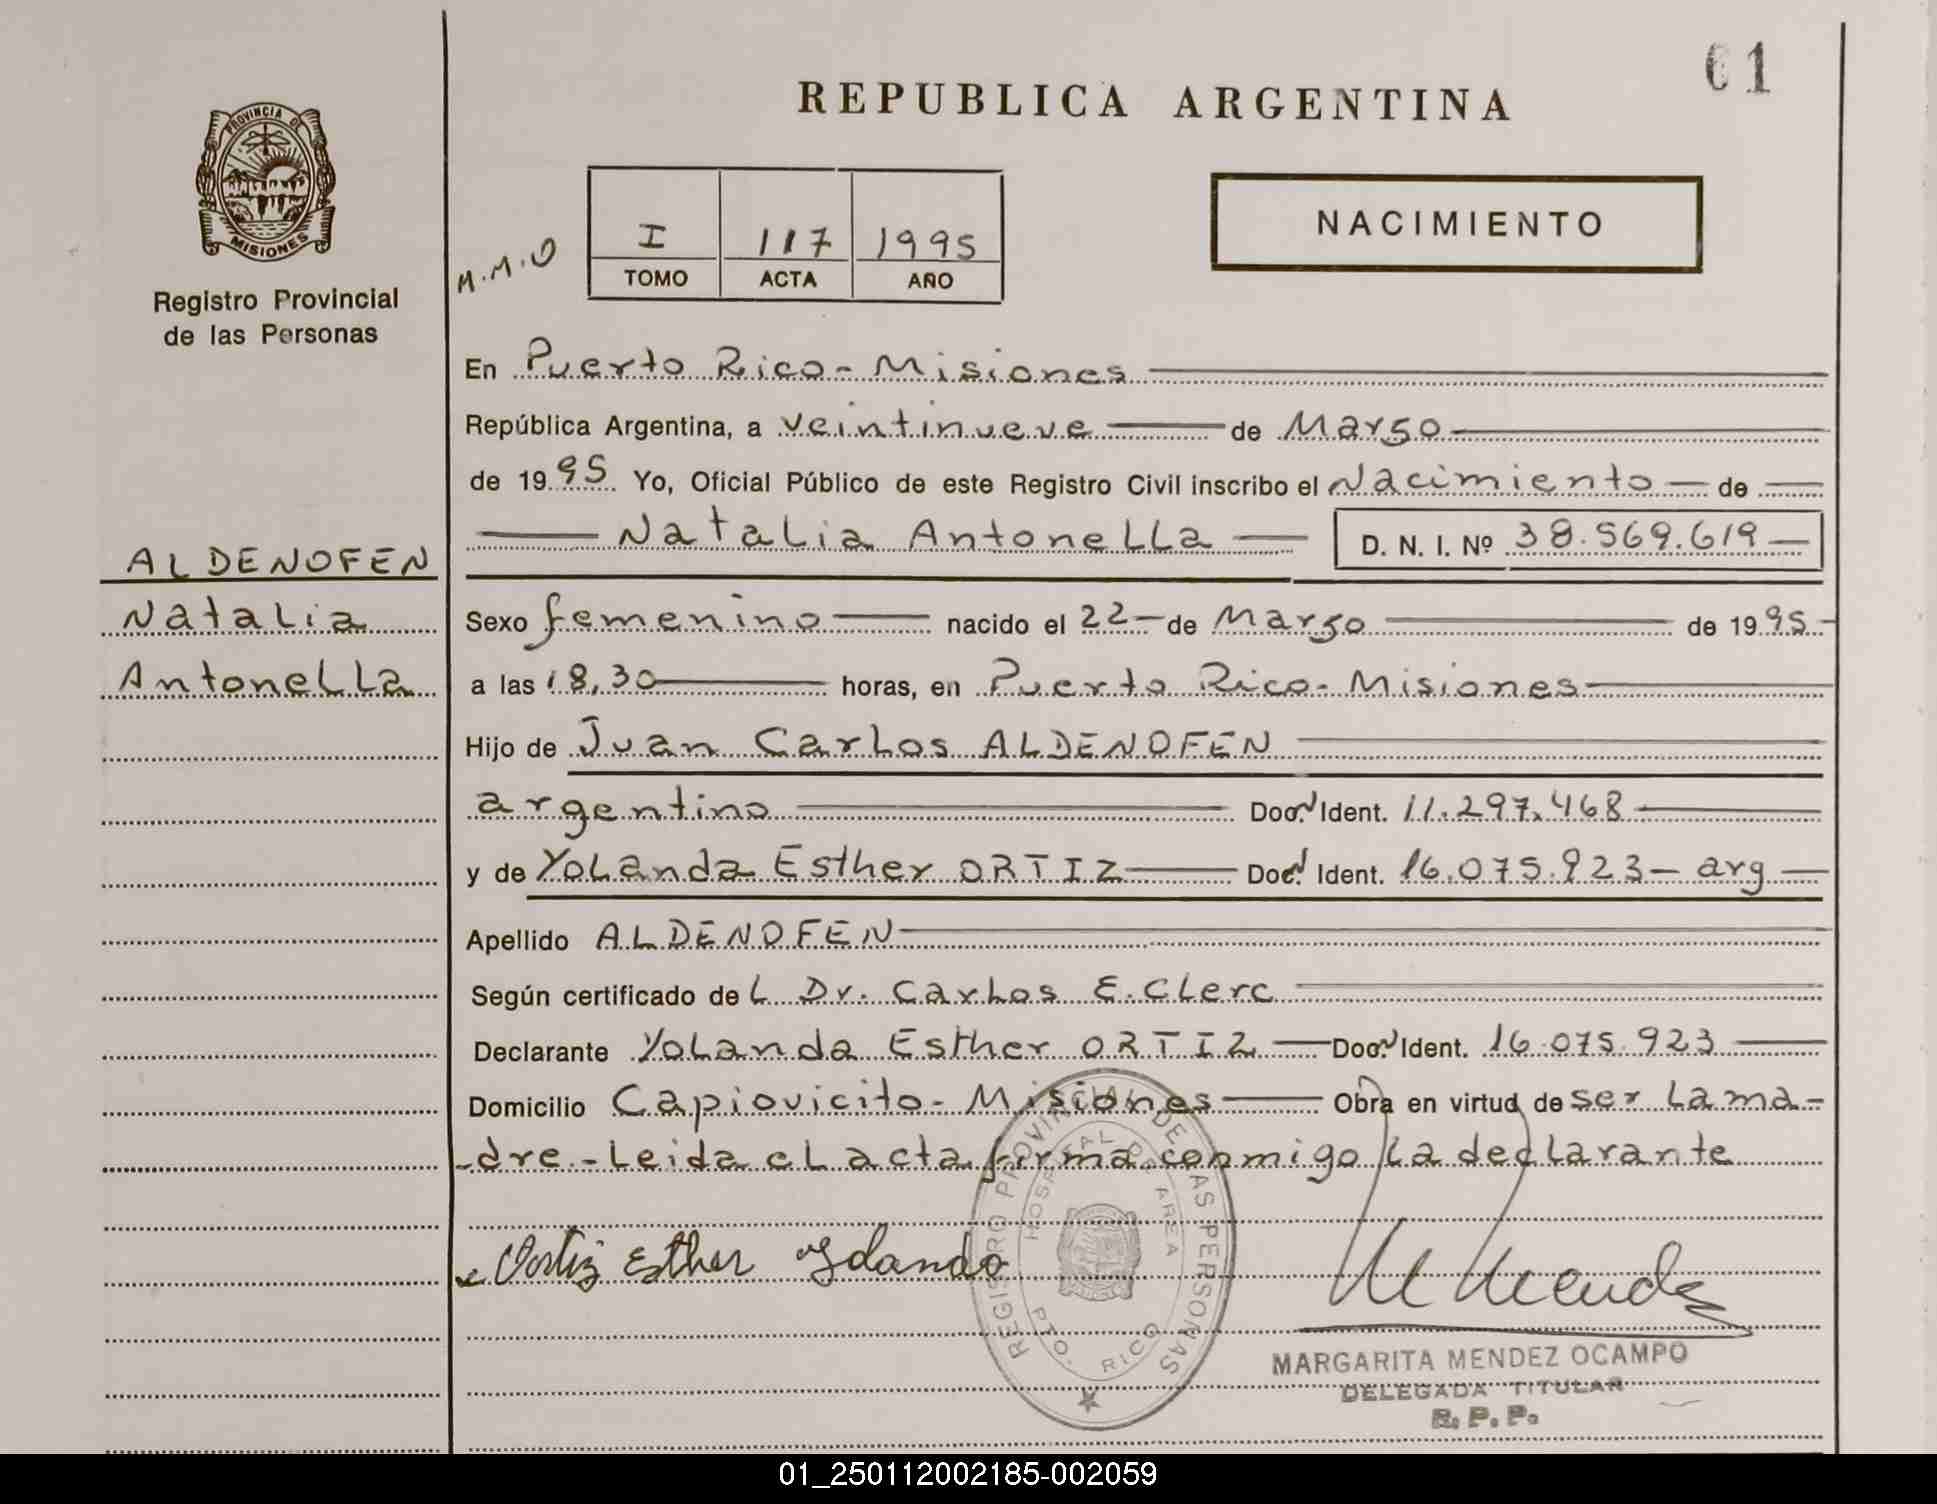 61
REPUBLICA ARGENTINA
PROVINCIA DE
MISIONES
Registro Provincial
de las Personas
M.M.O
I 117 1995
TOMO ACTA AÑO
NACIMIENTO
En Puerto Rico - Misiones
República Argentina, a veintinueve de Marso
de 1995 Yo, Oficial Público de este Registro Civil inscribo el Nacimiento de
Natalia Antonella D. N. I. Nº 38.569.619
ALDENOFEN
Natalia
Antonella
Sexo femenino nacido el 22 de Marso de 1995
a las 18,30 horas, en Puerto Rico - Misiones
Hijo de Juan Carlos ALDENOFEN
argentino Doc. Ident. 11.297.468
y de Yolanda Esther ORTIZ Doc. Ident. 16.075.923 - arg
Apellido ALDENOFEN
Según certificado del Dr. Carlos E. Clerc
Declarante Yolanda Esther ORTIZ Doc. Ident. 16.075.923
Domicilio Capiovicito - Misiones Obra en virtud de ser la ma-
-dre - Leida el acta firma conmigo la declarante
Ortiz Esther Yolanda
REGISTRO PROVINCIAL DE LAS PERSONAS
HOSPITAL DE AREA
PTO. RICO
M Mendez
MARGARITA MENDEZ OCAMPO
DELEGADA TITULAR
R. P. P.
01_250112002185-002059